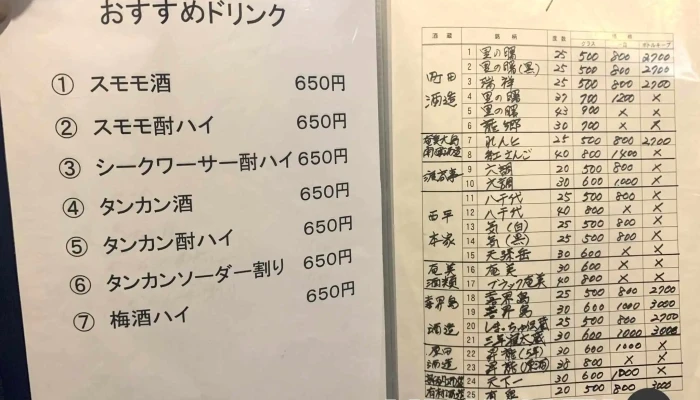 おすすめドリンク
① スモモ酒 650円
② スモモ酎ハイ 650円
③ シークワーサー酎ハイ 650円
④ タンカン酒 650円
⑤ タンカン酎ハイ 650円
⑥ タンカンソーダー割り 650円
⑦ 梅酒ハイ 650円
酒蔵 銘柄 度数 価格
グラス 一合 ボトルキープ
町田酒造
1 里の曙 25 500 800 2700
2 里の曙(黒) 25 500 800 2700
3 瑞祥 25 500 800 2700
4 里の曙 37 700 1200 ×
5 里の曙 43 900 × ×
6 龍郷 30 700 × ×
7 れんと 25 500 800 2700
8 紅さんご 40 800 1400 ×
9 六調 20 500 800 ×
10 六調 30 600 1000 ×
西平本家
11 八千代 25 500 800 ×
12 八千代 40 800 × ×
13 気(白) 25 500 800 ×
14 気(黒) 25 500 800 ×
15 天孫岳 30 600 × ×
奄美酒類
16 奄美 30 600 × ×
17 ブラック奄美 40 800 × ×
喜界島酒造
18 喜界島 25 500 800 2700
19 喜界島 30 600 1000 3000
20 しまっちゅ伝蔵 25 500 800 2700
21 三年寝太蔵 30 600 1000 3000
原田酒造
22 昇龍(5年) 30 600 1000 ×
23 昇龍(原酒) 800 × ×
24 天下一 30 600 1000 ×
25 有泉 20 500 800 3000